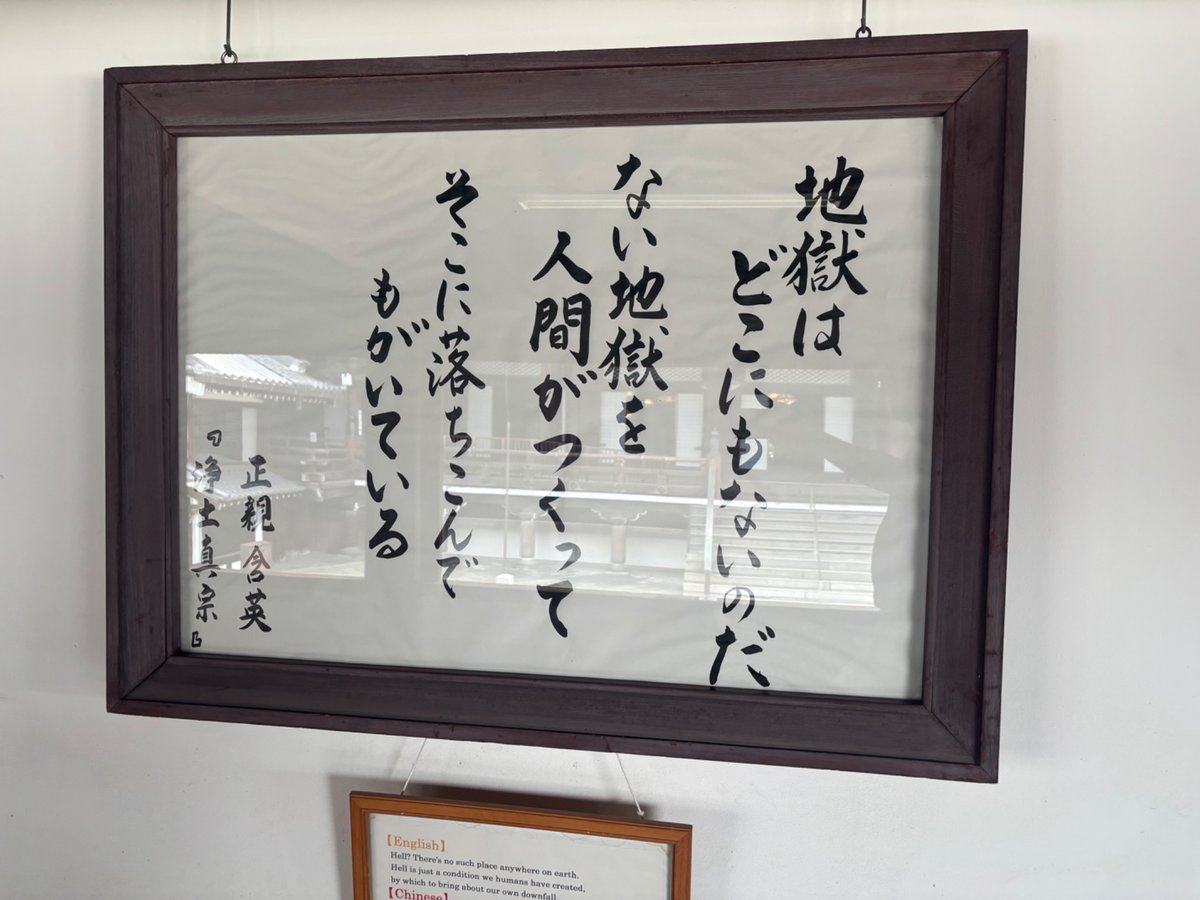 地獄は
どこにもないのだ
ない地獄を
人間がつくって
そこに落ちこんで
もがいている
正親含英
「浄土真宗」
【English】
Hell? There's no such place anywhere on earth.
Hell is just a condition we humans have created,
by which to bring about our own downfall.
【Chinese】